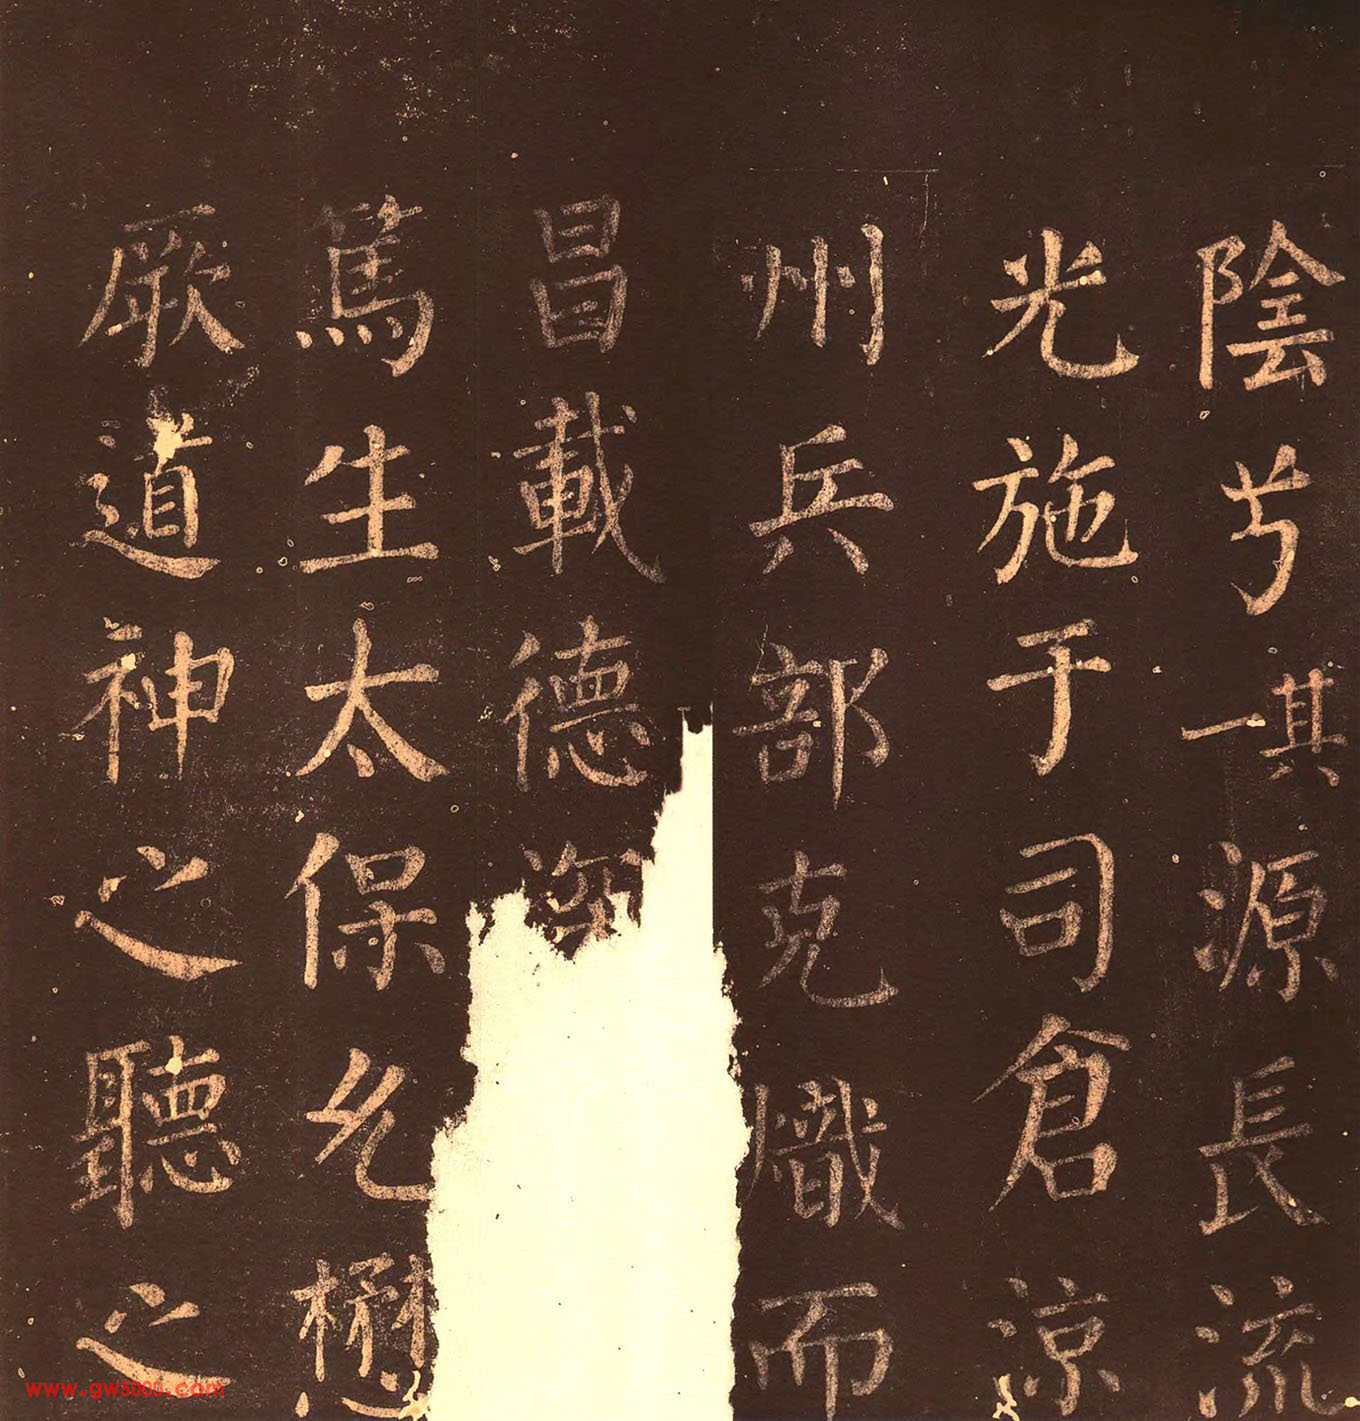 陰兮一其源長流
光施于司倉涼
州兵部克熾而
昌載德深
篤生太保允懋
厥道神之聽之
www.gw5000.com